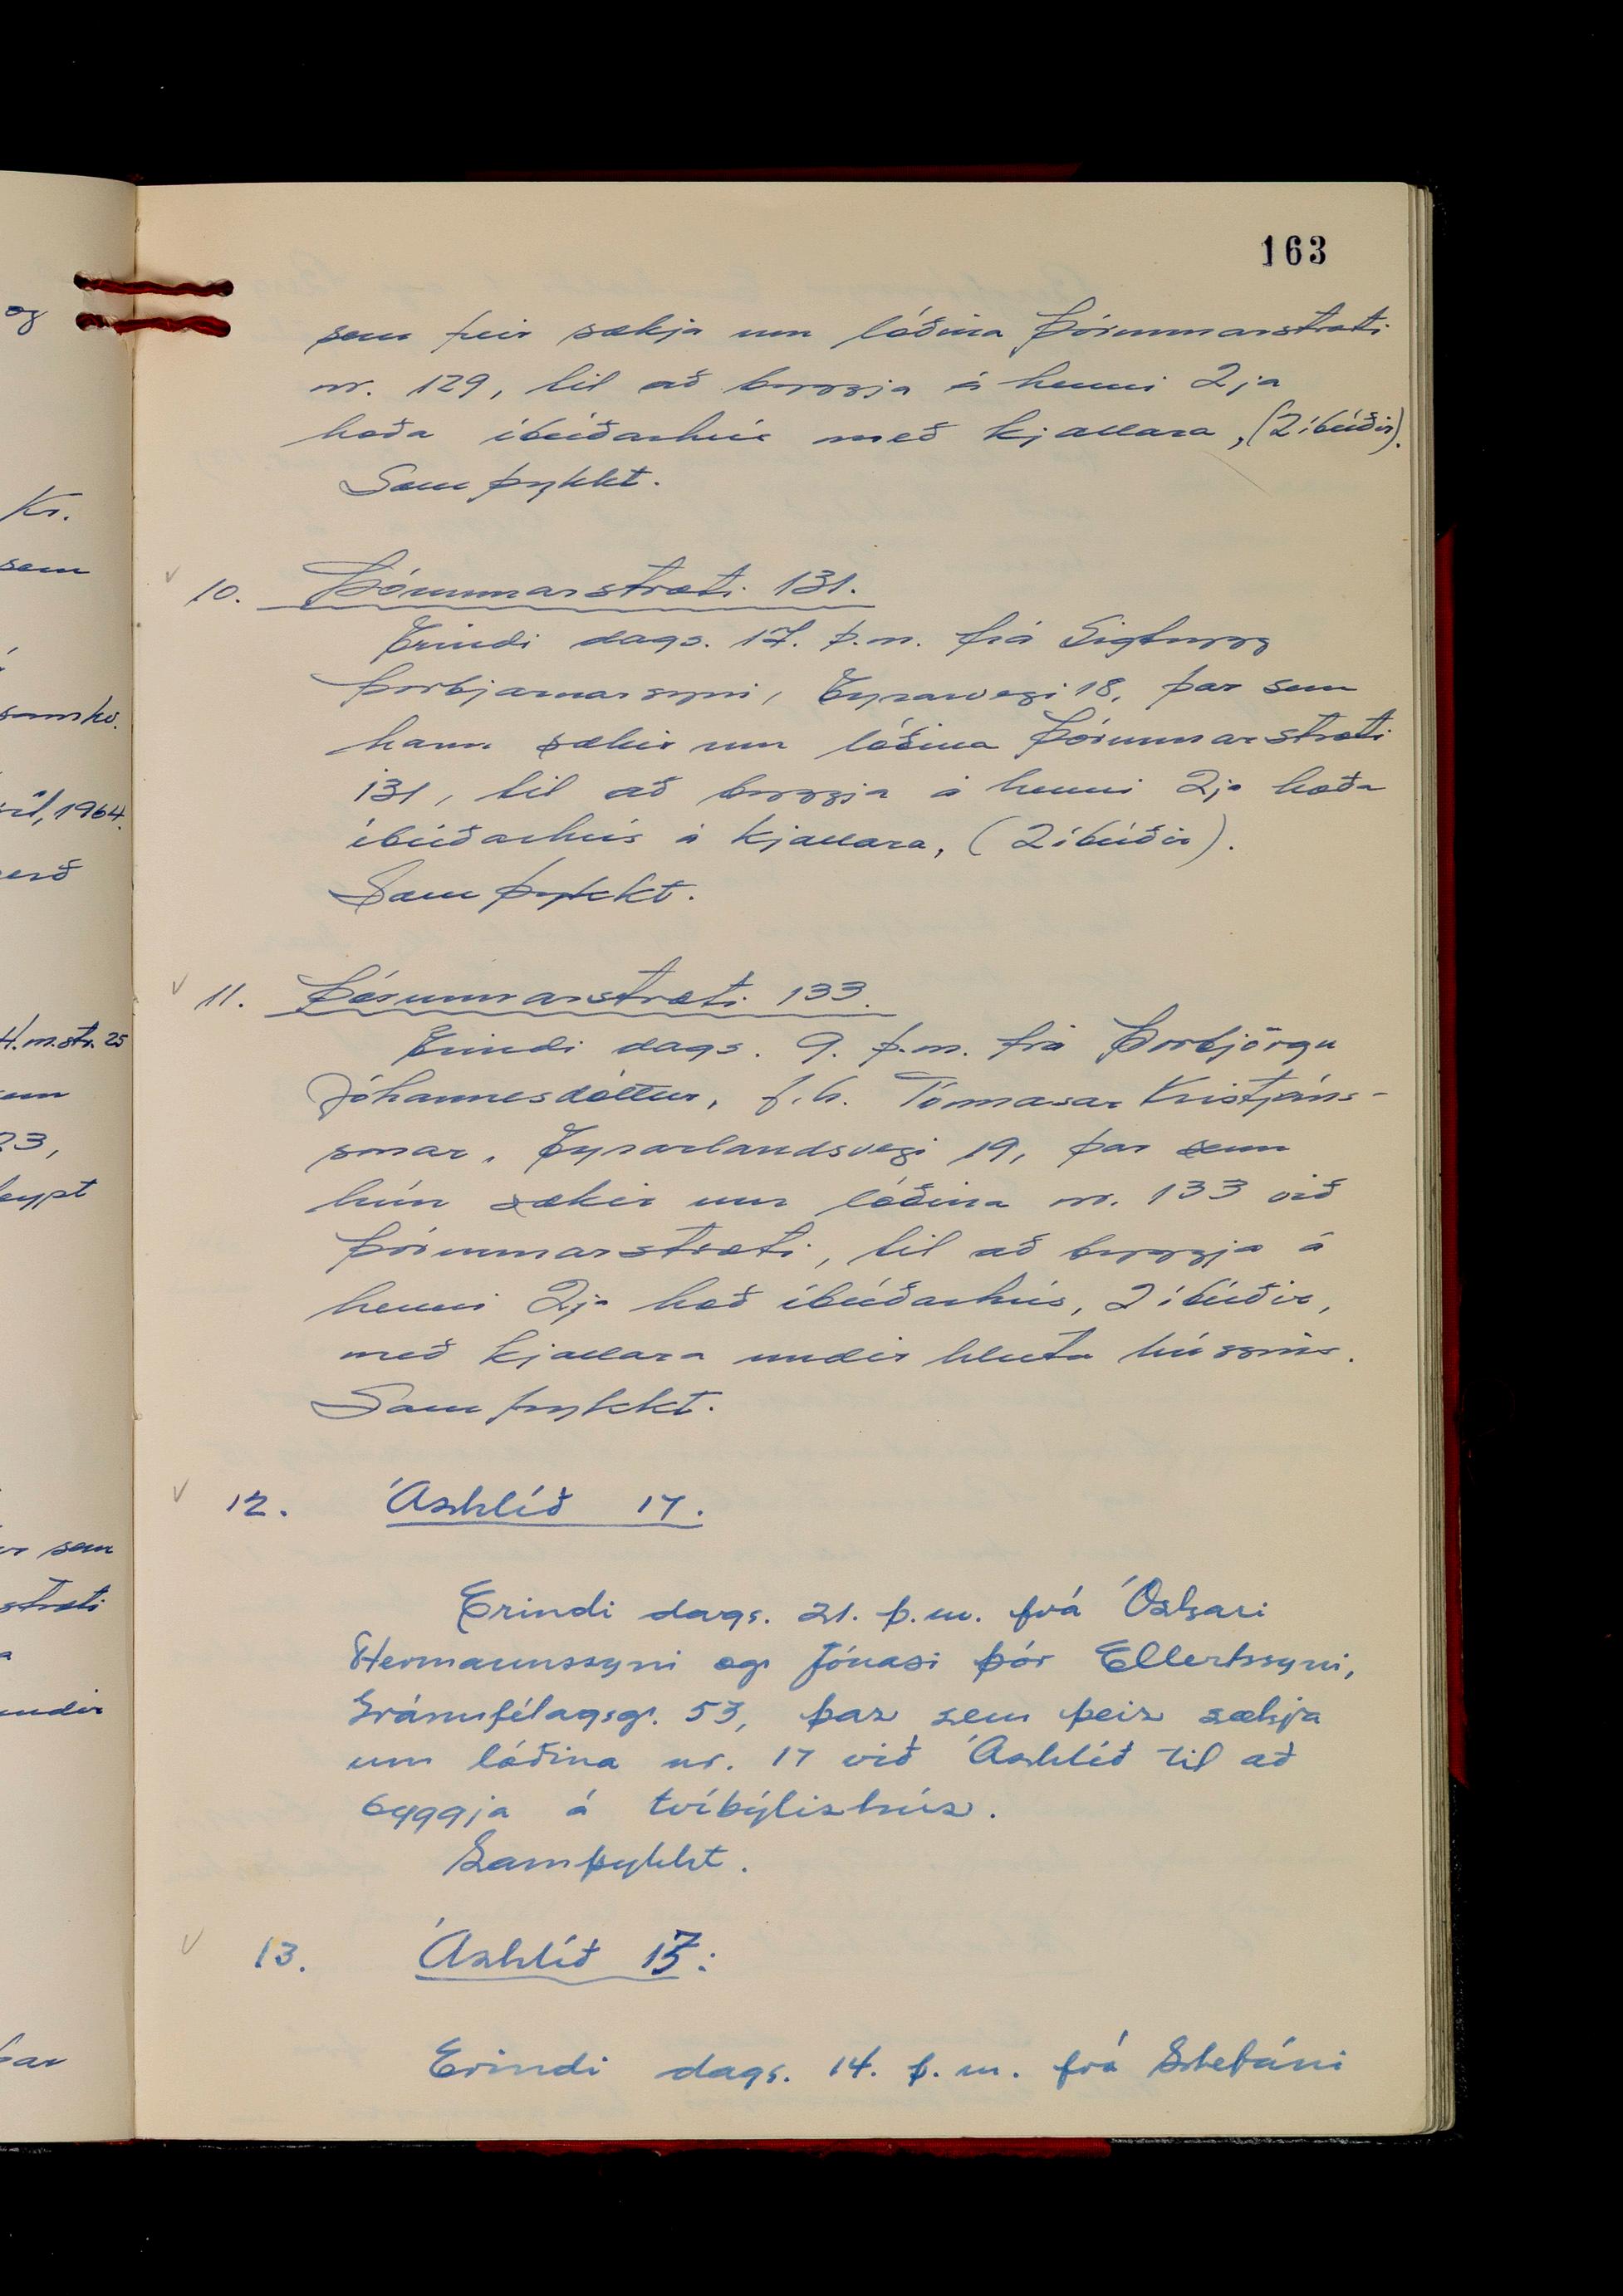 163
sem þeir sækja um lóðina Þórunnarstræti
nr. 129, til að byggja á henni 2ja
hæða íbúðarhús með kjallara, (2 íbúðir).
Samþykkt.
10. Þórunnarstræti 131.
Erindi dags. 17. þ.m. frá Sigtrygg
Þorbjarnarsyni, Eyrarvegi 18, þar sem
hann sækir um lóðina Þórunnarstræti
131, til að byggja á henni 2ja hæða
íbúðarhús á kjallara, (2 íbúðir).
Samþykkt.
11. Þórunnarstræti 133.
Erindi dags. 9. þ.m. frá Þorbjörgu
Jóhannesdóttur, f.h. Tómasar Kristjáns-
sonar, Eyrarlandsvegi 19, þar sem
hún sækir um lóðina nr. 133 við
Þórunnarstræti, til að byggja á
henni 2ja hæð íbúðarhús, 2 íbúðir,
með kjallara undir hluta hússins.
Samþykkt.
12. Áshlíð 17.
Erindi dags. 21. þ.m. frá Óskari
Hermannssyni og Jónasi Þór Ellertssyni,
Gránufélagsg. 53, þar sem þeir sækja
um lóðina nr. 17 við Áshlíð til að
byggja á tvíbýlishús.
Samþykkt.
13. Áshlíð
Erindi dags. 14. þ.m. frá Stefáni
og
Kr.
sem
1964.
H.m.str. 25
23,
sem
stræti
þar